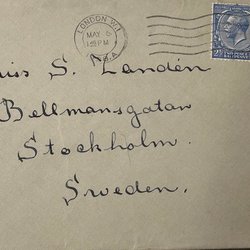 LONDON W.1
MAY 6
iss S. Landén
Bellmansgatan
Stockholm.
Sweden.